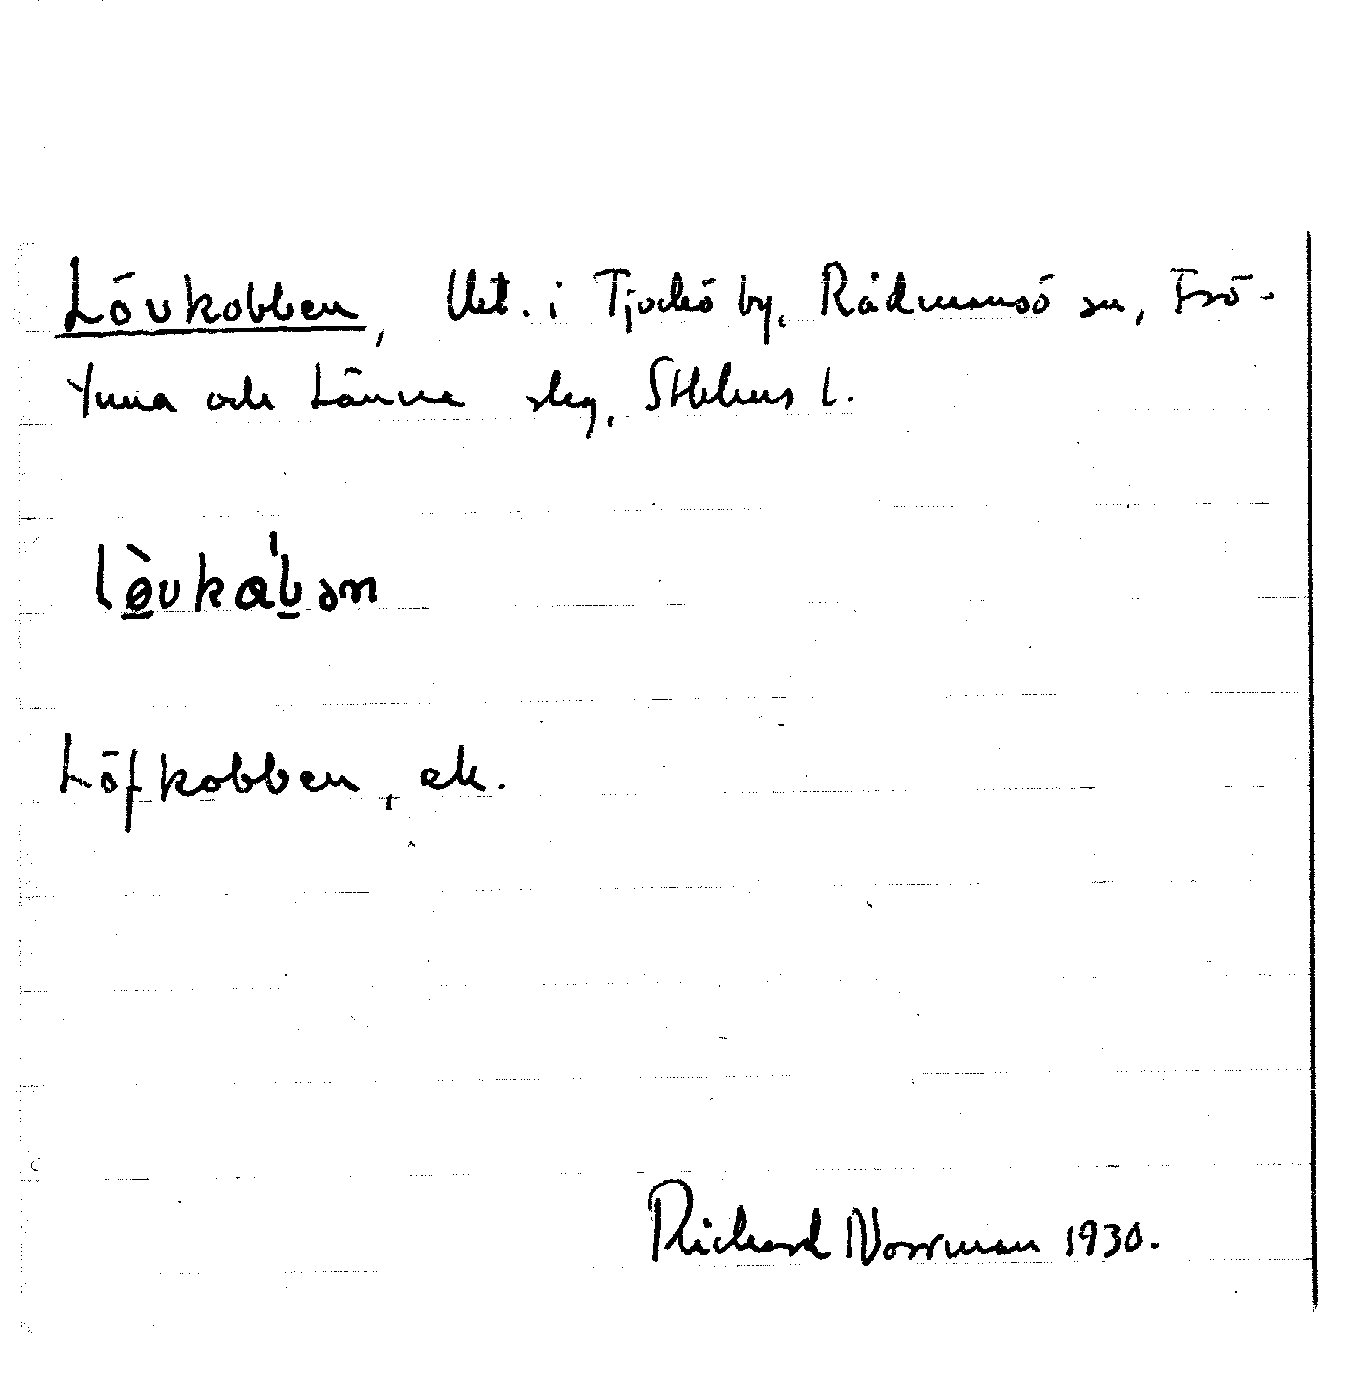 Lövkobben, Utt. i Tjockö by, Rådmansö sn, Frö-
tuna och Länna skg, Sthlms l.
lø̀vkab̍ən
Löfkobben, ek.
Richard Norrman 1930.